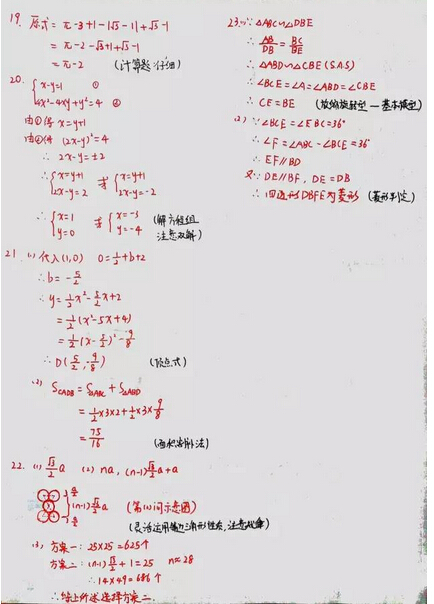 19. 原式 = π-3+1-|√3-1|+√3-1
= π-2-√3+1+√3-1
= π-2 (计算题:仔细)
20. {x-y=1 ①
4x²-4xy+y²=4 ②
由①得 x=y+1
由②得 (2x-y)²=4
∴ 2x-y=±2
∴ {x=y+1 2x-y=2 或 {x=y+1 2x-y=-2
∴ {x=1 y=0 或 {x=-3 y=-4 (解方程组 注意双解)
21. (1) 代入(1,0) 0=1/2+b+2
∴ b=-5/2
∴ y=1/2x²-5/2x+2
=1/2(x²-5x+4)
=1/2(x-5/2)²-9/8
∴ D(5/2,-9/8) (顶点式)
(2) S_CADB = S_△ABC + S_△ABD
= 1/2×3×2+1/2×3×9/8
= 75/16 (面积割补法)
22. (1) √3/2 a (2) na, (n-1)√3/2 a+a
a/2
(n-1)√3/2 a (第(2)问示意图)
a/2
(3) 方案一: 25×25=625个
方案二: (n-1)√3/2+1=25 n≈28
∴ 14×49=686个
∴ 综上所述选择方案二.
23.(1) ∵ △ABC∽△DBE
∴ AB/DB = BC/BE
∴ △ABD∽△CBE (S.A.S)
∴ ∠BCE=∠A=∠ABD=∠CBE
∴ CE=BE (放缩旋转型—基本模型)
(2) ∵ ∠BCE=∠EBC=36°
∴ ∠F=∠ABC-∠BCE=36°
∴ EF∥BD
又∵ DE∥BF, DE=DB
∴ 四边形DBFE为菱形 (菱形判定)